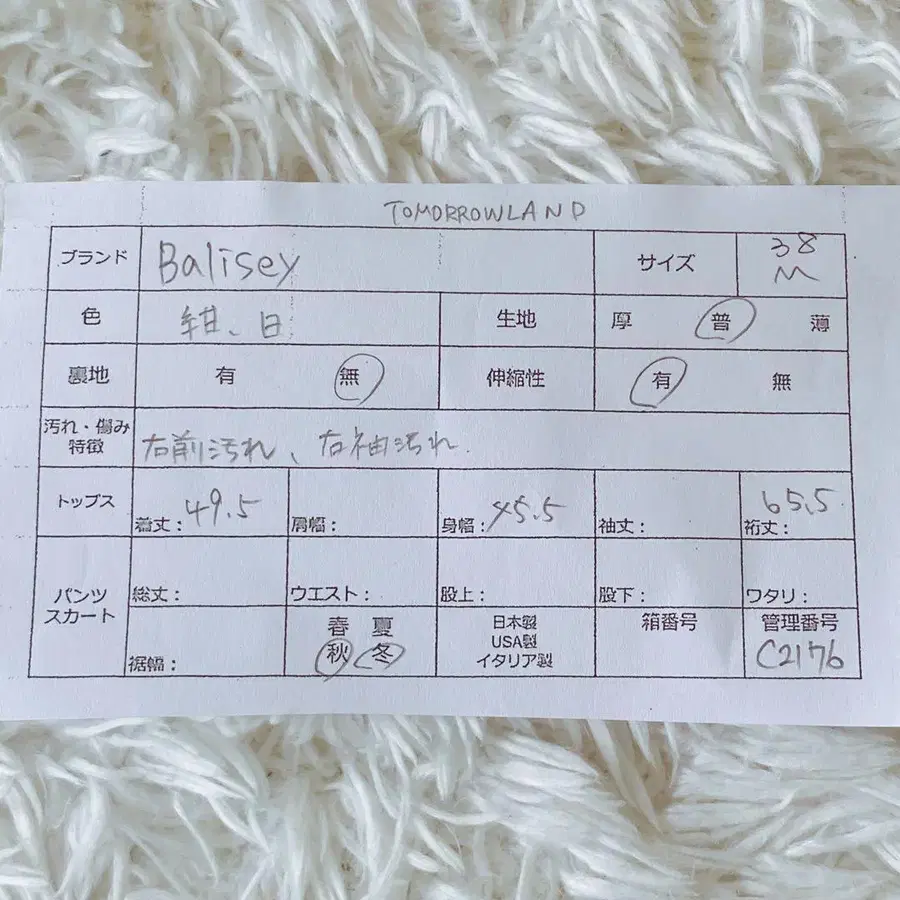 TOMORROWLAND
ブランド Balisey サイズ 38 M
色 紺、白 生地 厚 普 薄
裏地 有 無 伸縮性 有 無
汚れ・傷み 特徴 右前汚れ、右袖汚れ.
トップス 着丈: 49.5 肩幅: 身幅: 45.5 袖丈: 裄丈: 65.5
パンツ スカート 総丈: ウエスト: 股上: 股下: ワタリ:
裾幅: 春 夏 秋 冬 日本製 USA製 イタリア製 箱番号 管理番号 C2176